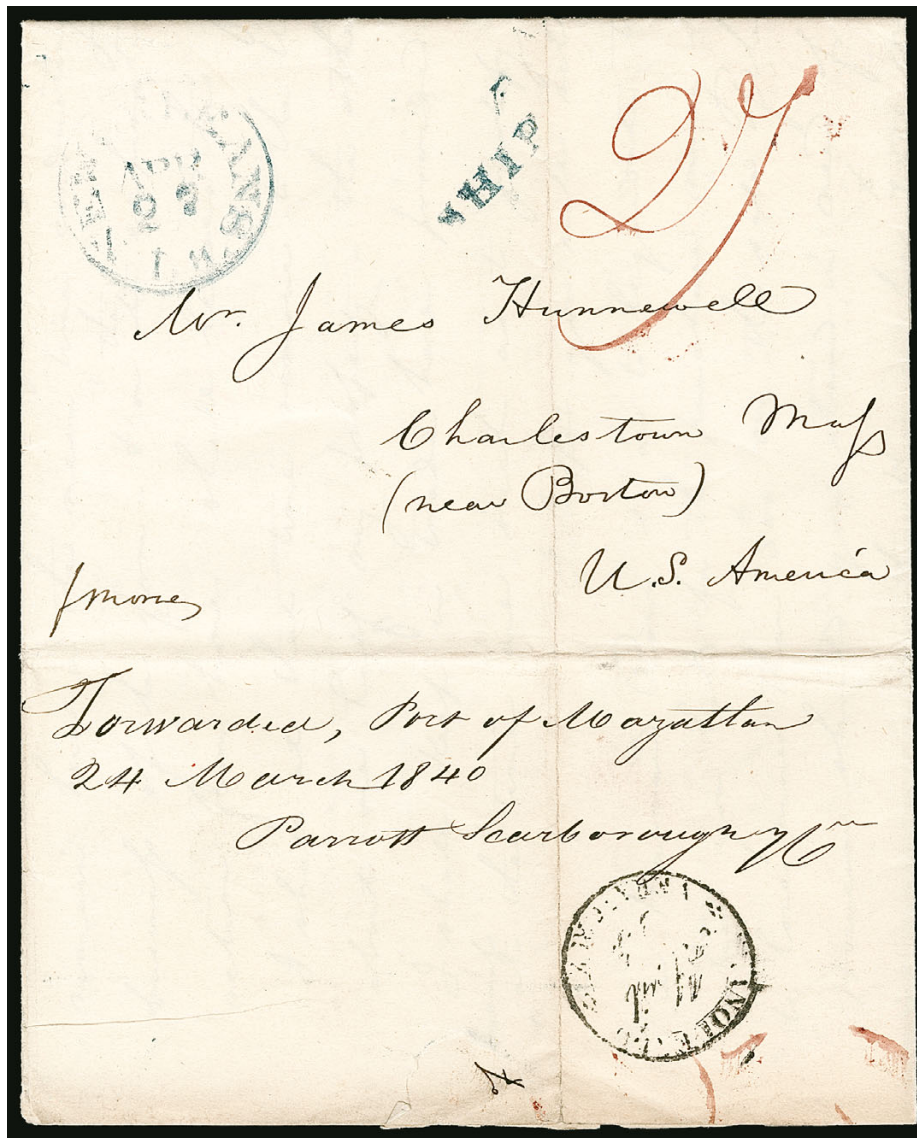 NEW ORLEANS
APR
27
SHIP
27
Mr. James Hunnewell
Charlestown Mass
(near Boston)
U.S. America
Forwarded, Port of Mazatlan
24 March 1840
Parrott Scarborough &Co